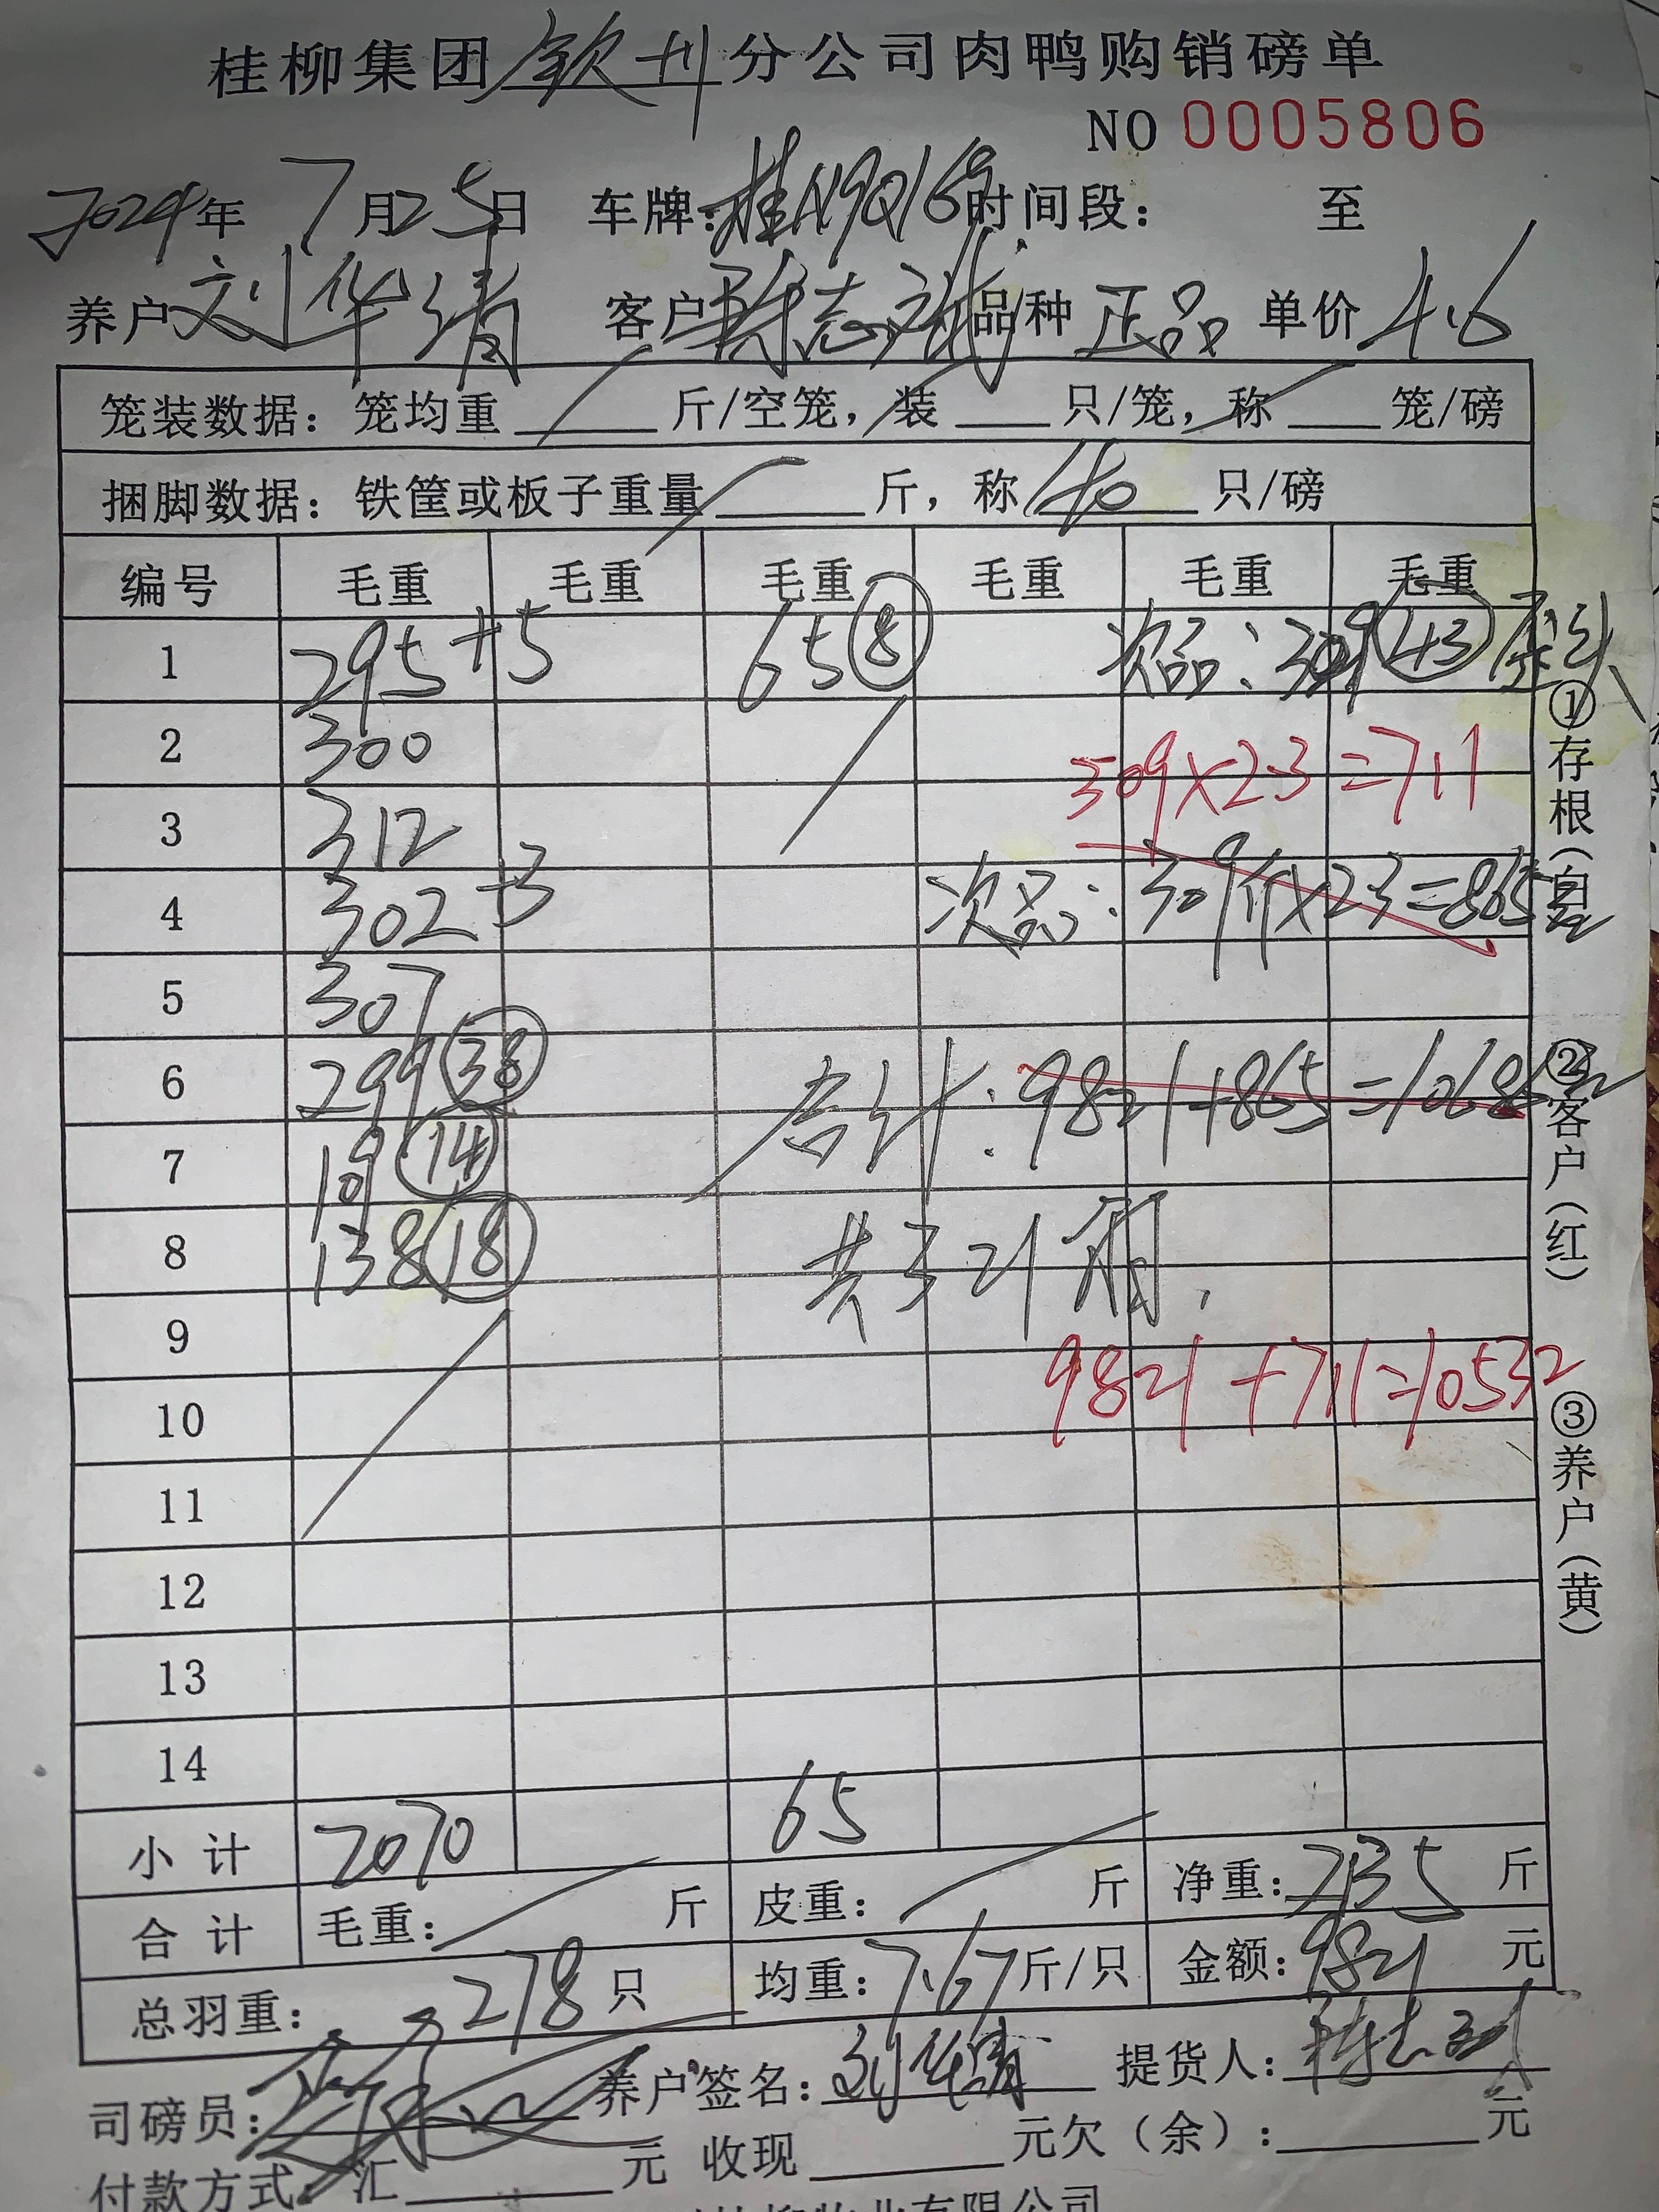 桂柳集团钦州分公司肉鸭购销磅单
NO 0005806
2024年 7月25日 车牌: 时间段: 至
养户 刘华清 客户 陈志 品种 正品 单价 4.6
笼装数据: 笼均重 斤/空笼, 装 只/笼, 称 笼/磅
捆脚数据: 铁筐或板子重量 斤, 称 40 只/磅
编号 毛重 毛重 毛重 毛重 毛重 毛重
1 295 +5 65 8 次品: 309 43
2 300 309×2.3=711
3 312
4 302 -3 次品: 309斤×2.3=865
5 307
6 299 38 合计: 9821+865=1068
7 109 14
8 138 18 共321只
9
10 9821+711=10532
11
12
13
14
小计 2070 65
合计 毛重: 斤 皮重: 斤 净重: 2135 斤
总羽重: 278 只 均重: 7.67 斤/只 金额: 9821 元
司磅员: 养户签名: 刘华清 提货人:
付款方式: 汇 元 收现 元欠(余): 元
牧业有限公司
①存根(白)
②客户(红)
③养户(黄)